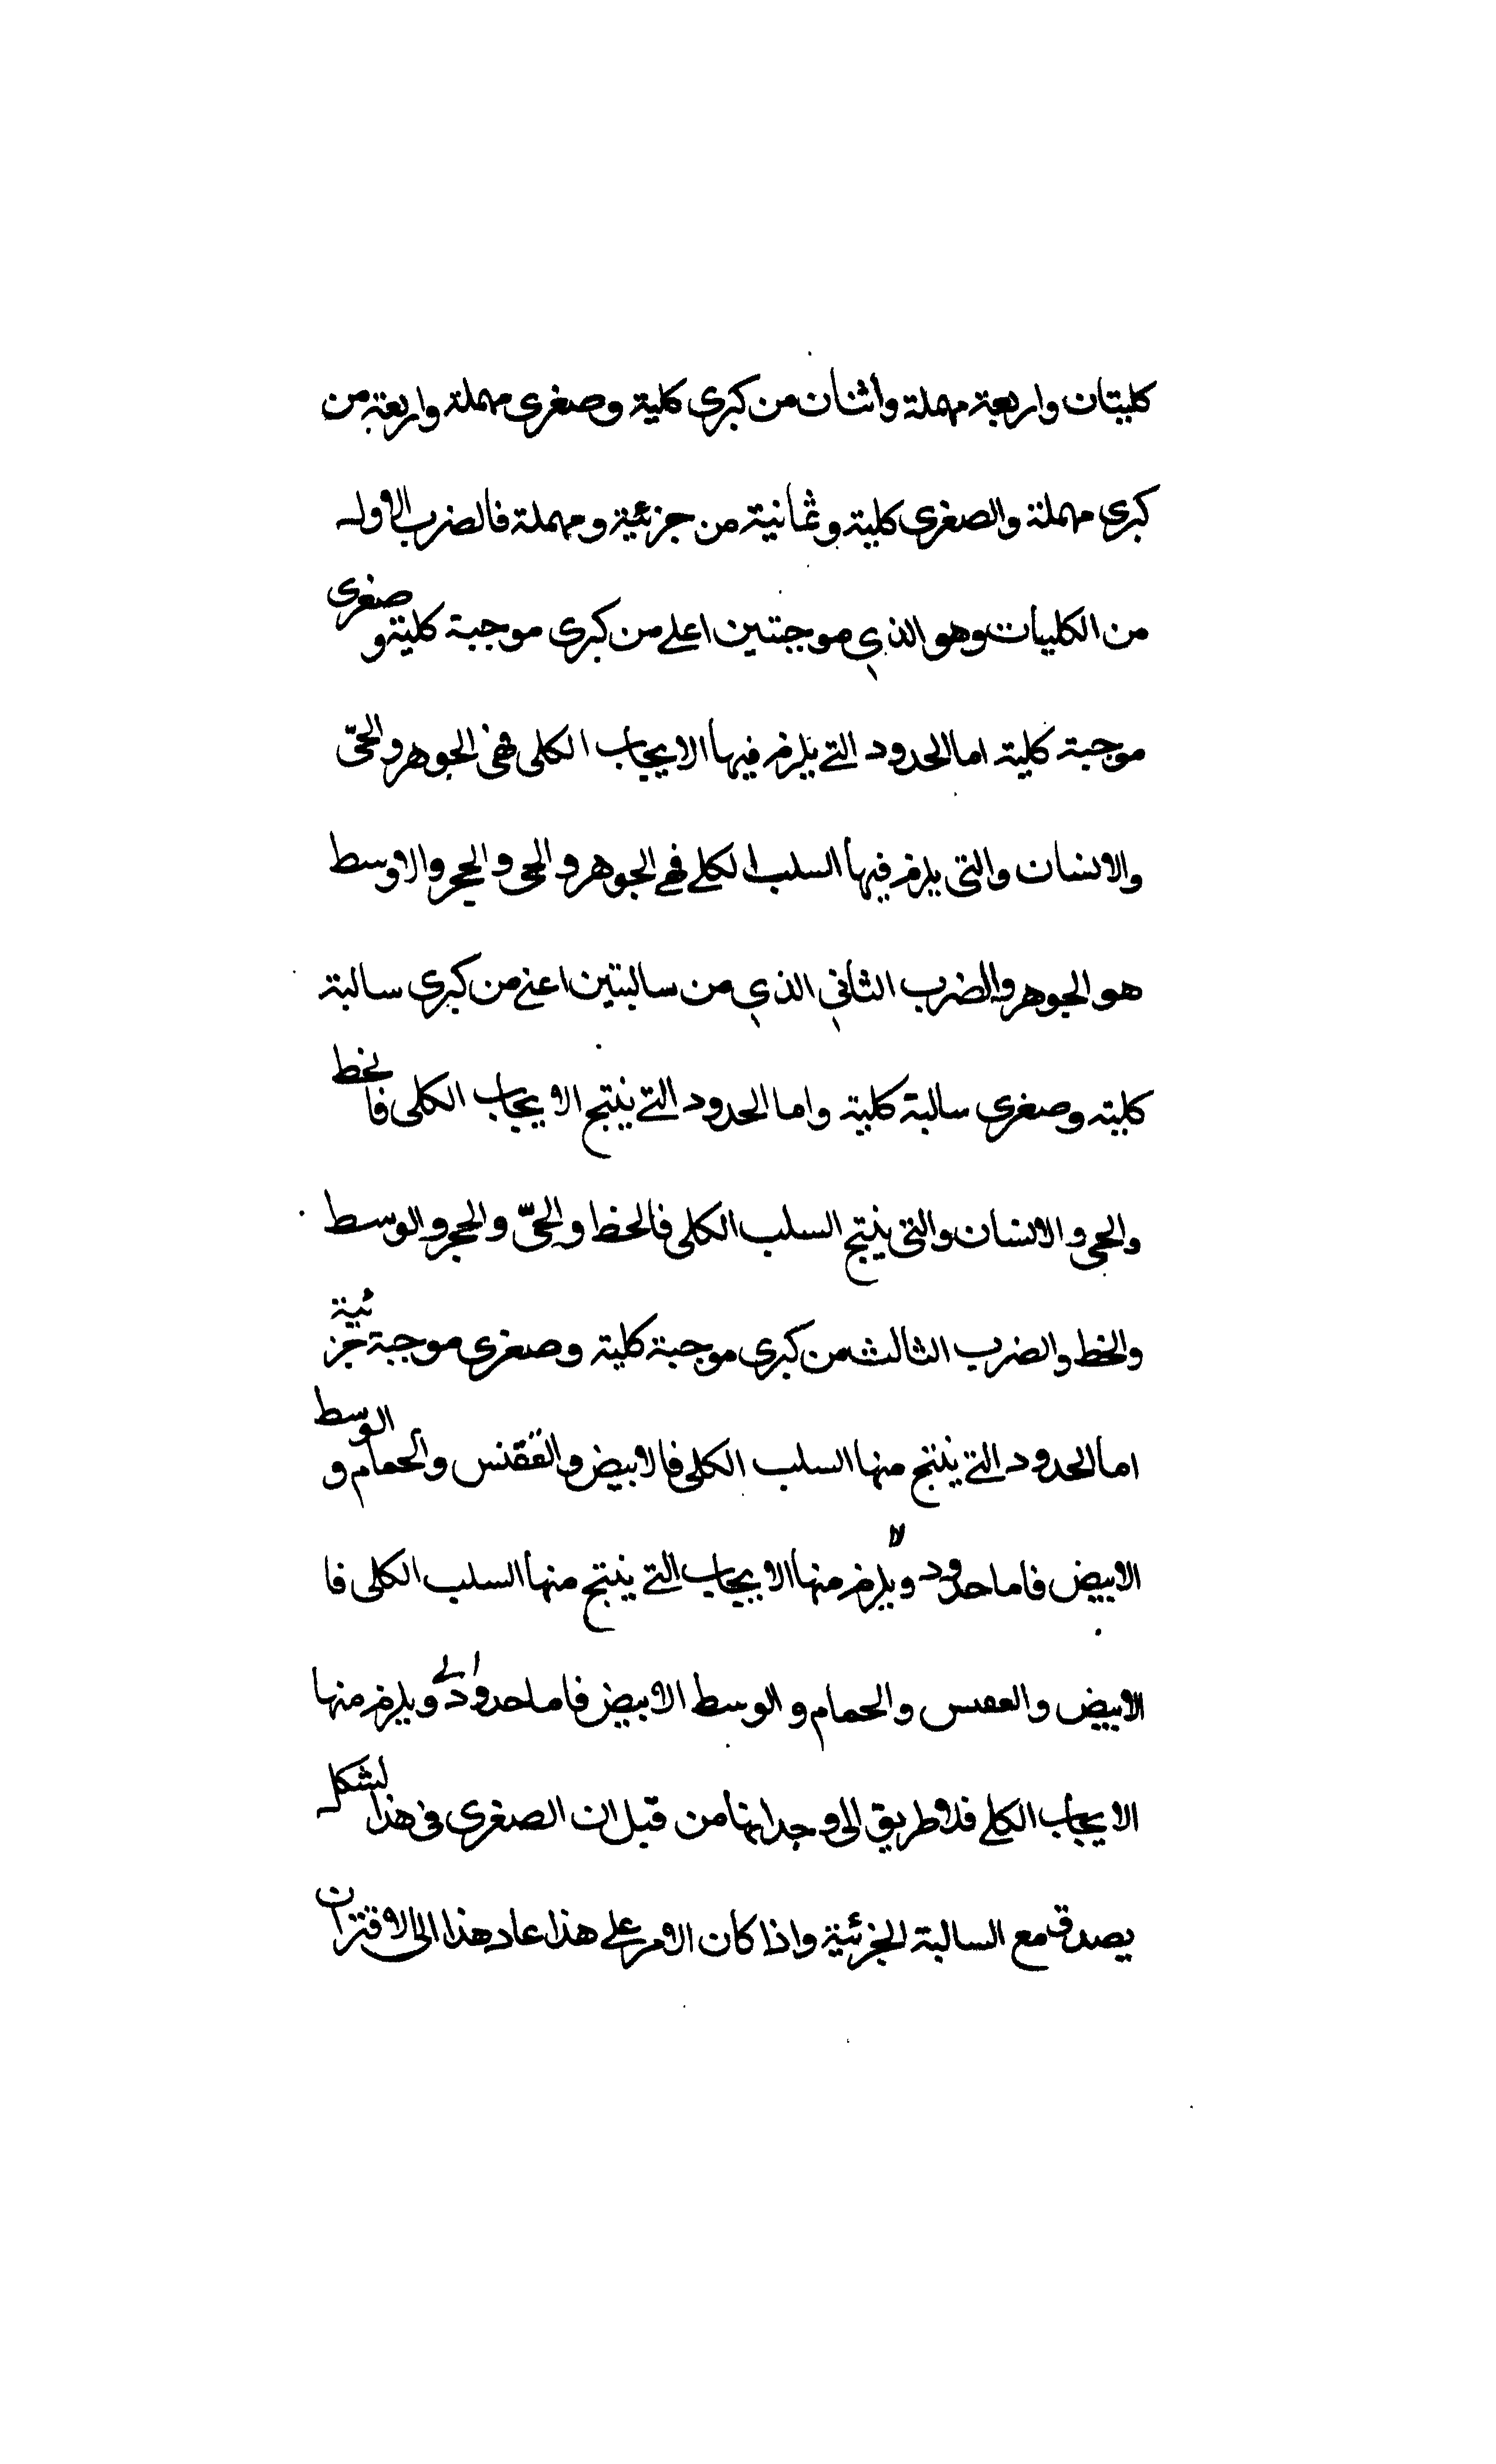 كليتان واربعة مهملة وأثنان من كبرى كلية وصغرى مهملة واربعة من
كبرى مهملة والصغرى كلية وثمانية من جزئية ومهملة فالضرب الاول
من الكليات وهو الذي موجتين اعلے من كبرى موجبة كلية وصغرى
موجبة كلية اما الحدود التے يلزم فيها الايجاب الكلى ففى الجوهر والحىّ
والانسان والتى يلزم فيها السلب الكلے فهے الجوهر والحى والحجر والاوسط
هو الجوهر والضرب الثاني الذي من سالبتين اعنے من كبرى سالبة
كلية وصغرى سالبة كلية واما الحدود التے ينتج الايجاب الكلى فالخط
والحى والانسان والتى ينتج السلب الكلى فالخط والحىّ والحجر والوسط
والخط والضرب الثالث من كبرى موجبة كلية وصغرى موجبة جزئية
اما الحدود التے ينتج منها السلب الكلى فالابيض والققنس والحمام والوسط
الابيض فاما حدود لا ويلزم منها الايجاب التے ينتج منها السلب الكلى فا
الابيض والعقس والحمام والوسط الابيض فاما حدود ويلزم منها
الايجاب الكلے فلا طريق الى وجدانها من قبل ان الصغرى فى هذا لشكل
يصدق مع السالبة الجزئية واذا كان الامر علے هذا عاد هذا الى الاقتران